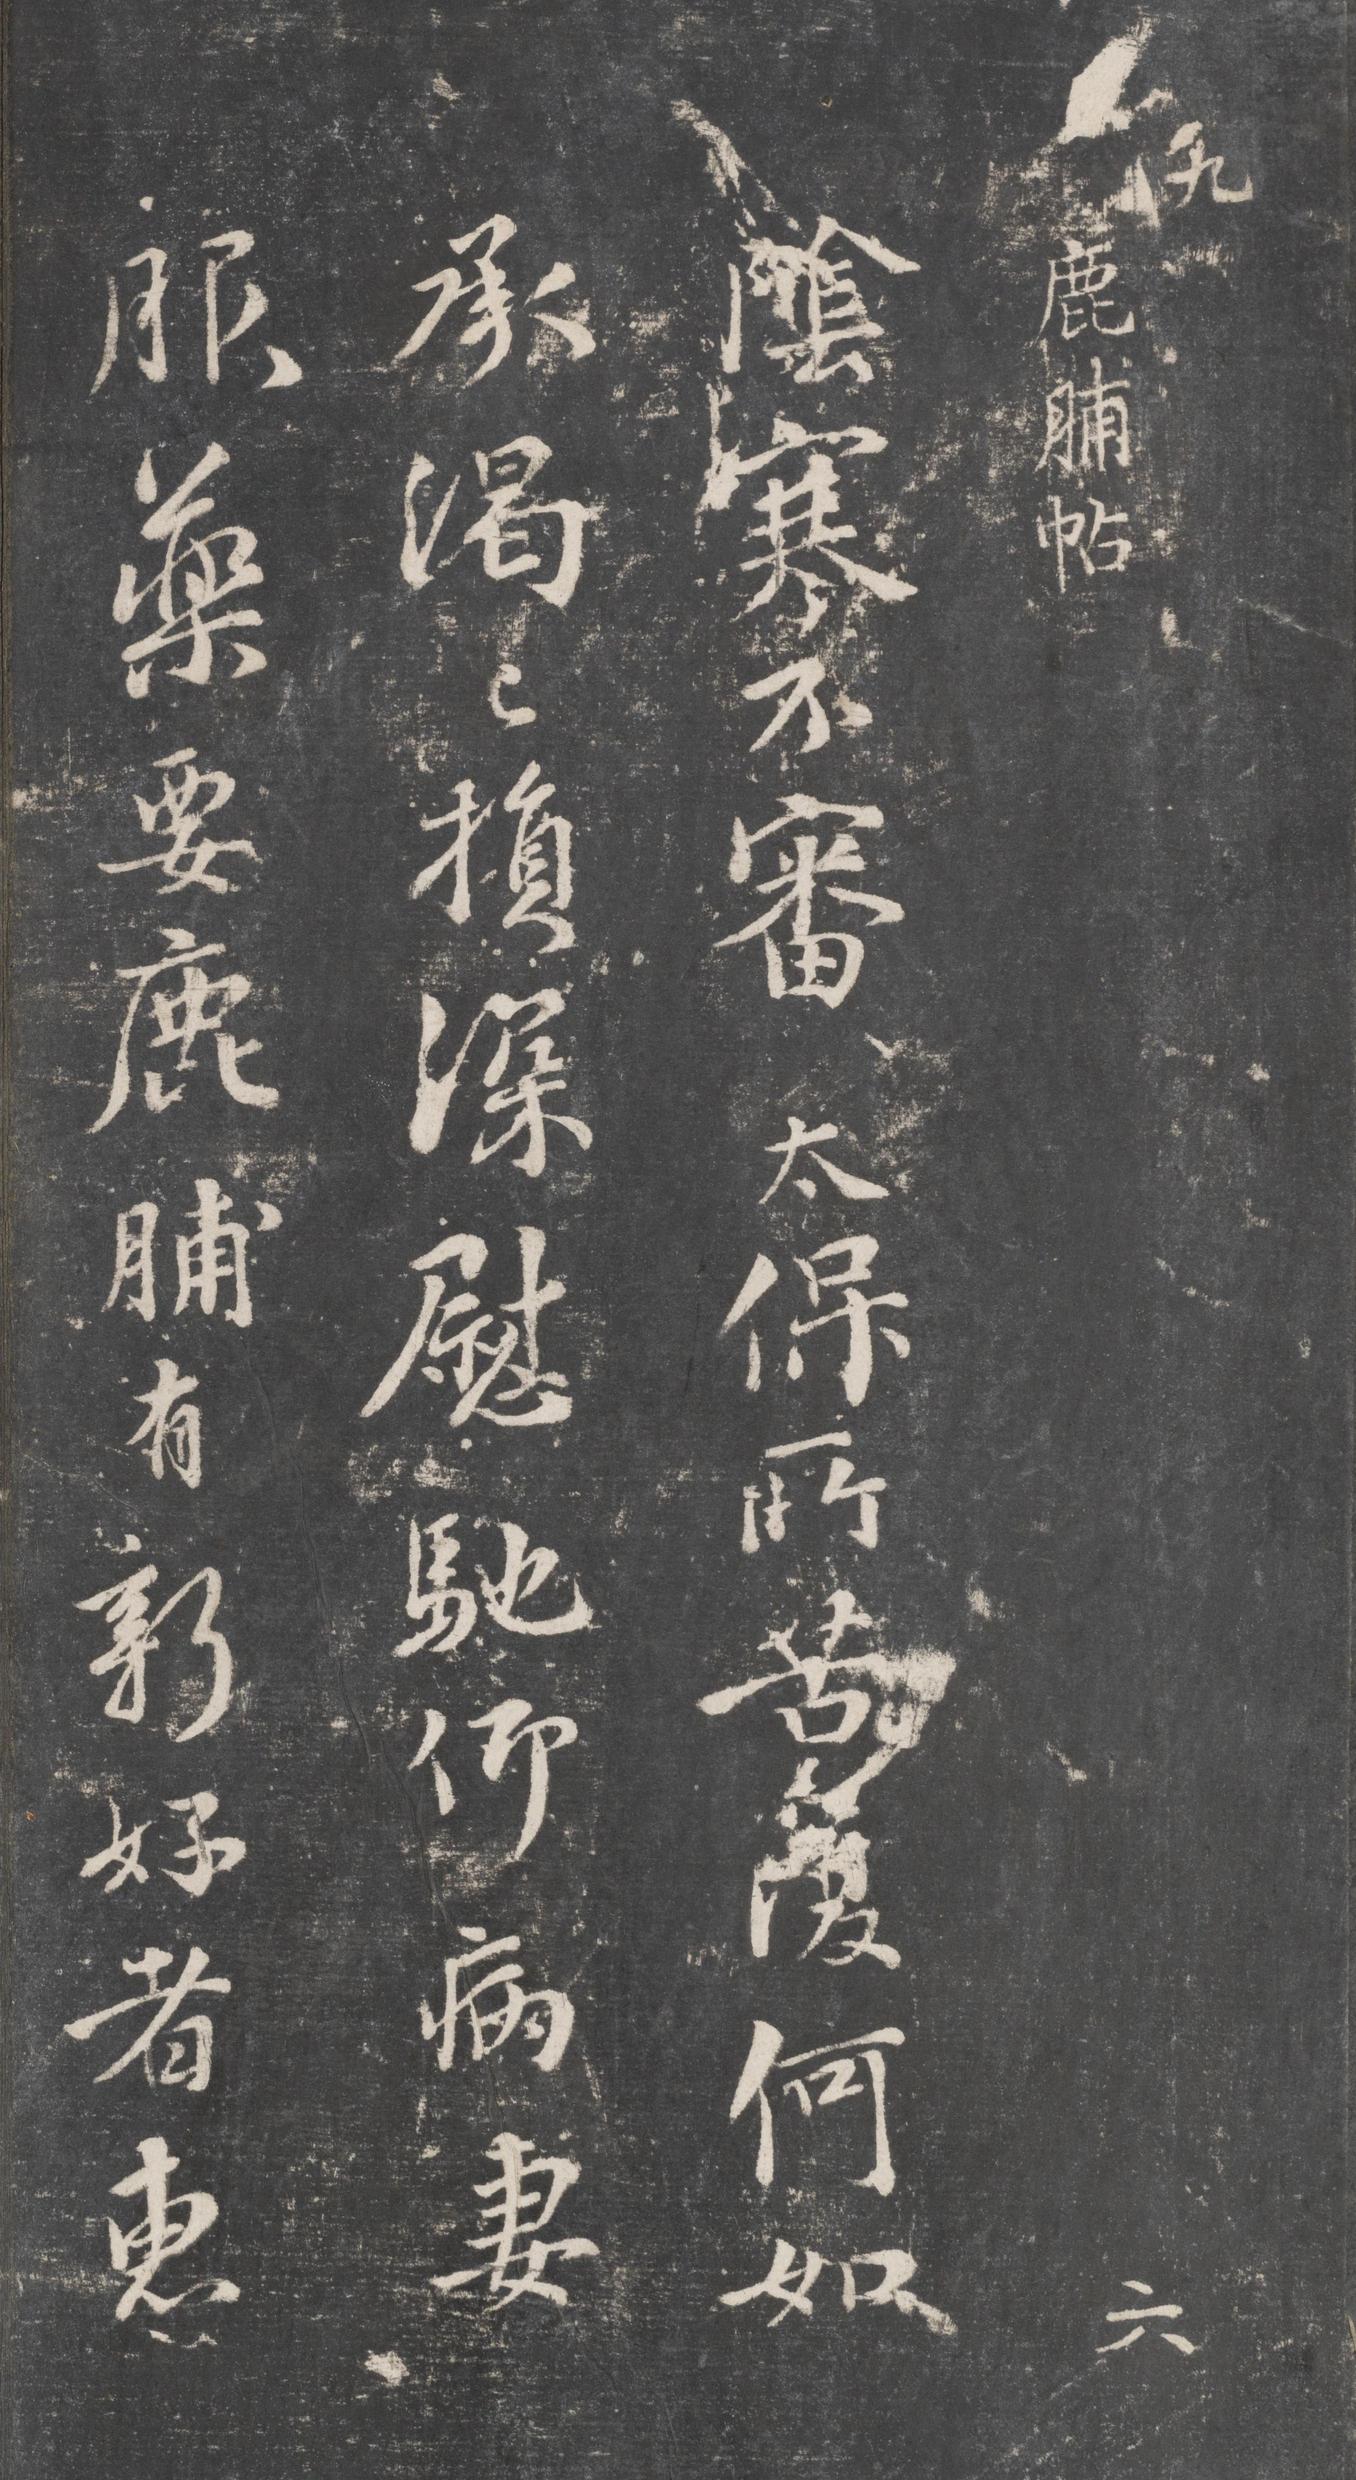 九
鹿脯帖
六
陰寒不審太保所苦復何如
承渴〻損深慰馳仰病妻
服藥要鹿脯有新好者惠